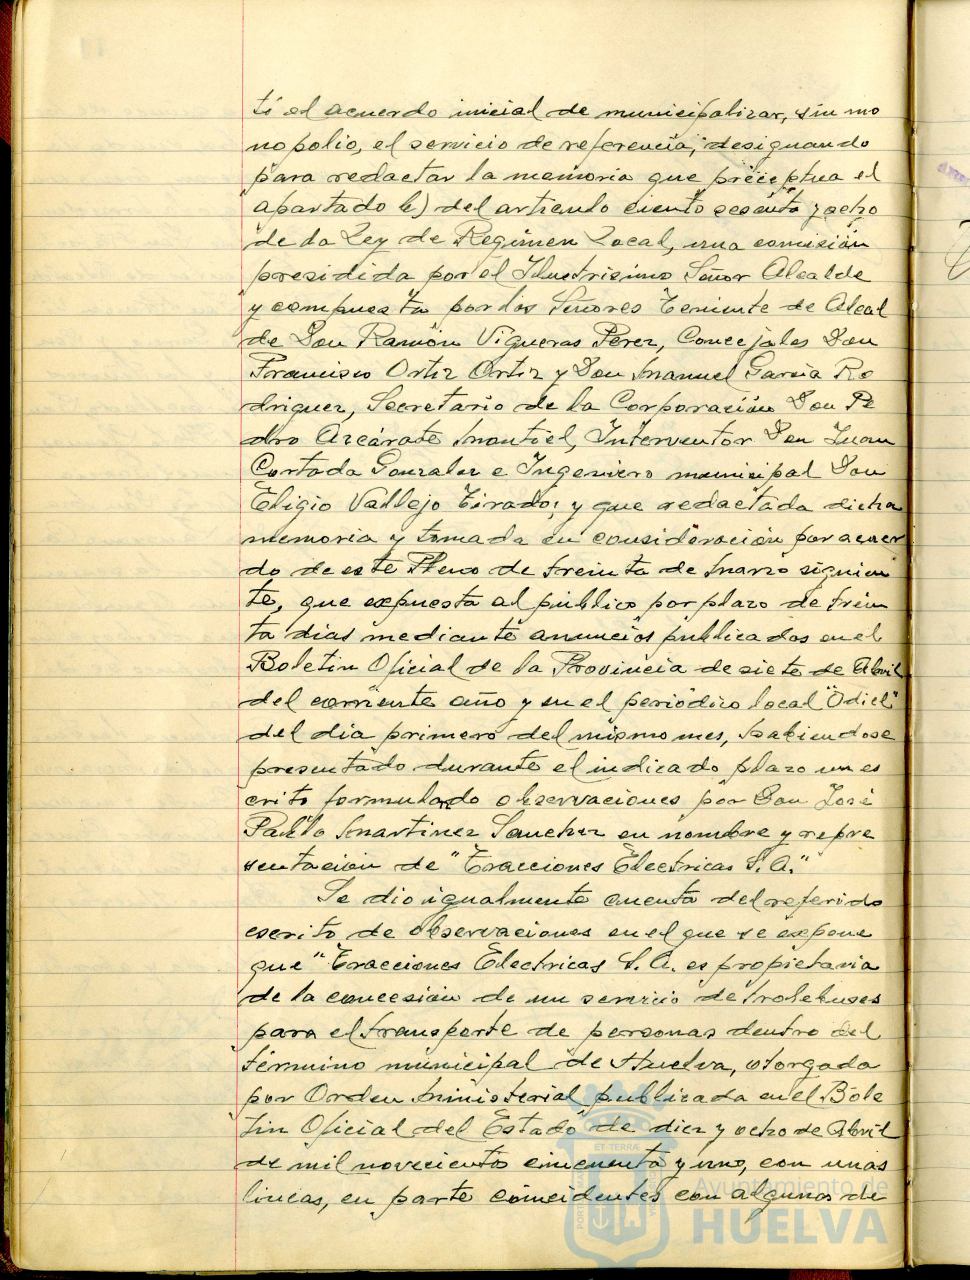 tó el acuerdo inicial de municipalizar, sin mo
nopolio, el servicio de referencia, designando
para redactar la memoria que preceptua el
apartado b) del articulo ciento sesenta y ocho
de la Ley de Regimen Local, una comisión
presidida por el Ilustrisimo Señor Alcalde
y compuesta por los Señores Teniente de Alcal
de Don Ramón Vigueras Perez, Concejales Don
Francisco Ortiz Ortiz y Don Manuel Garcia Ro
driguez, Secretario de la Corporación Don Pe
dro Azcárate Montiel, Interventor Don Juan
Cortada Gonzalez e Ingeniero municipal Don
Eligio Vallejo Tirado; y que redactada dicha
memoria y tomada en consideración por acuer
do de este Pleno de treinta de Marzo siguien
te, que expuesta al público por plazo de trein
ta dias mediante anuncios publicados en el
Boletin Oficial de la Provincia de siete de Abril
del corriente año y en el periódico local "Odiel"
del dia primero del mismo mes, habiendose
presentado durante el indicado plazo un es
crito formulando observaciones por Don José
Pablo Martinez Sanchez en nombre y repre
sentación de "Tracciones Electricas S.A."
Se dio igualmente cuenta del referido
escrito de observaciones en el que se expone
que "Tracciones Electricas S.A. es propietaria
de la concesión de un servicio de trolebuses
para el transporte de personas dentro del
término municipal de Huelva, otorgada
por Orden Ministerial publicada en el Bole
tin Oficial del Estado de diez y ocho de Abril
de mil noveciento cincuenta y uno, con unas
lineas, en parte coincidentes con algunas de
Ayuntamiento de
HUELVA